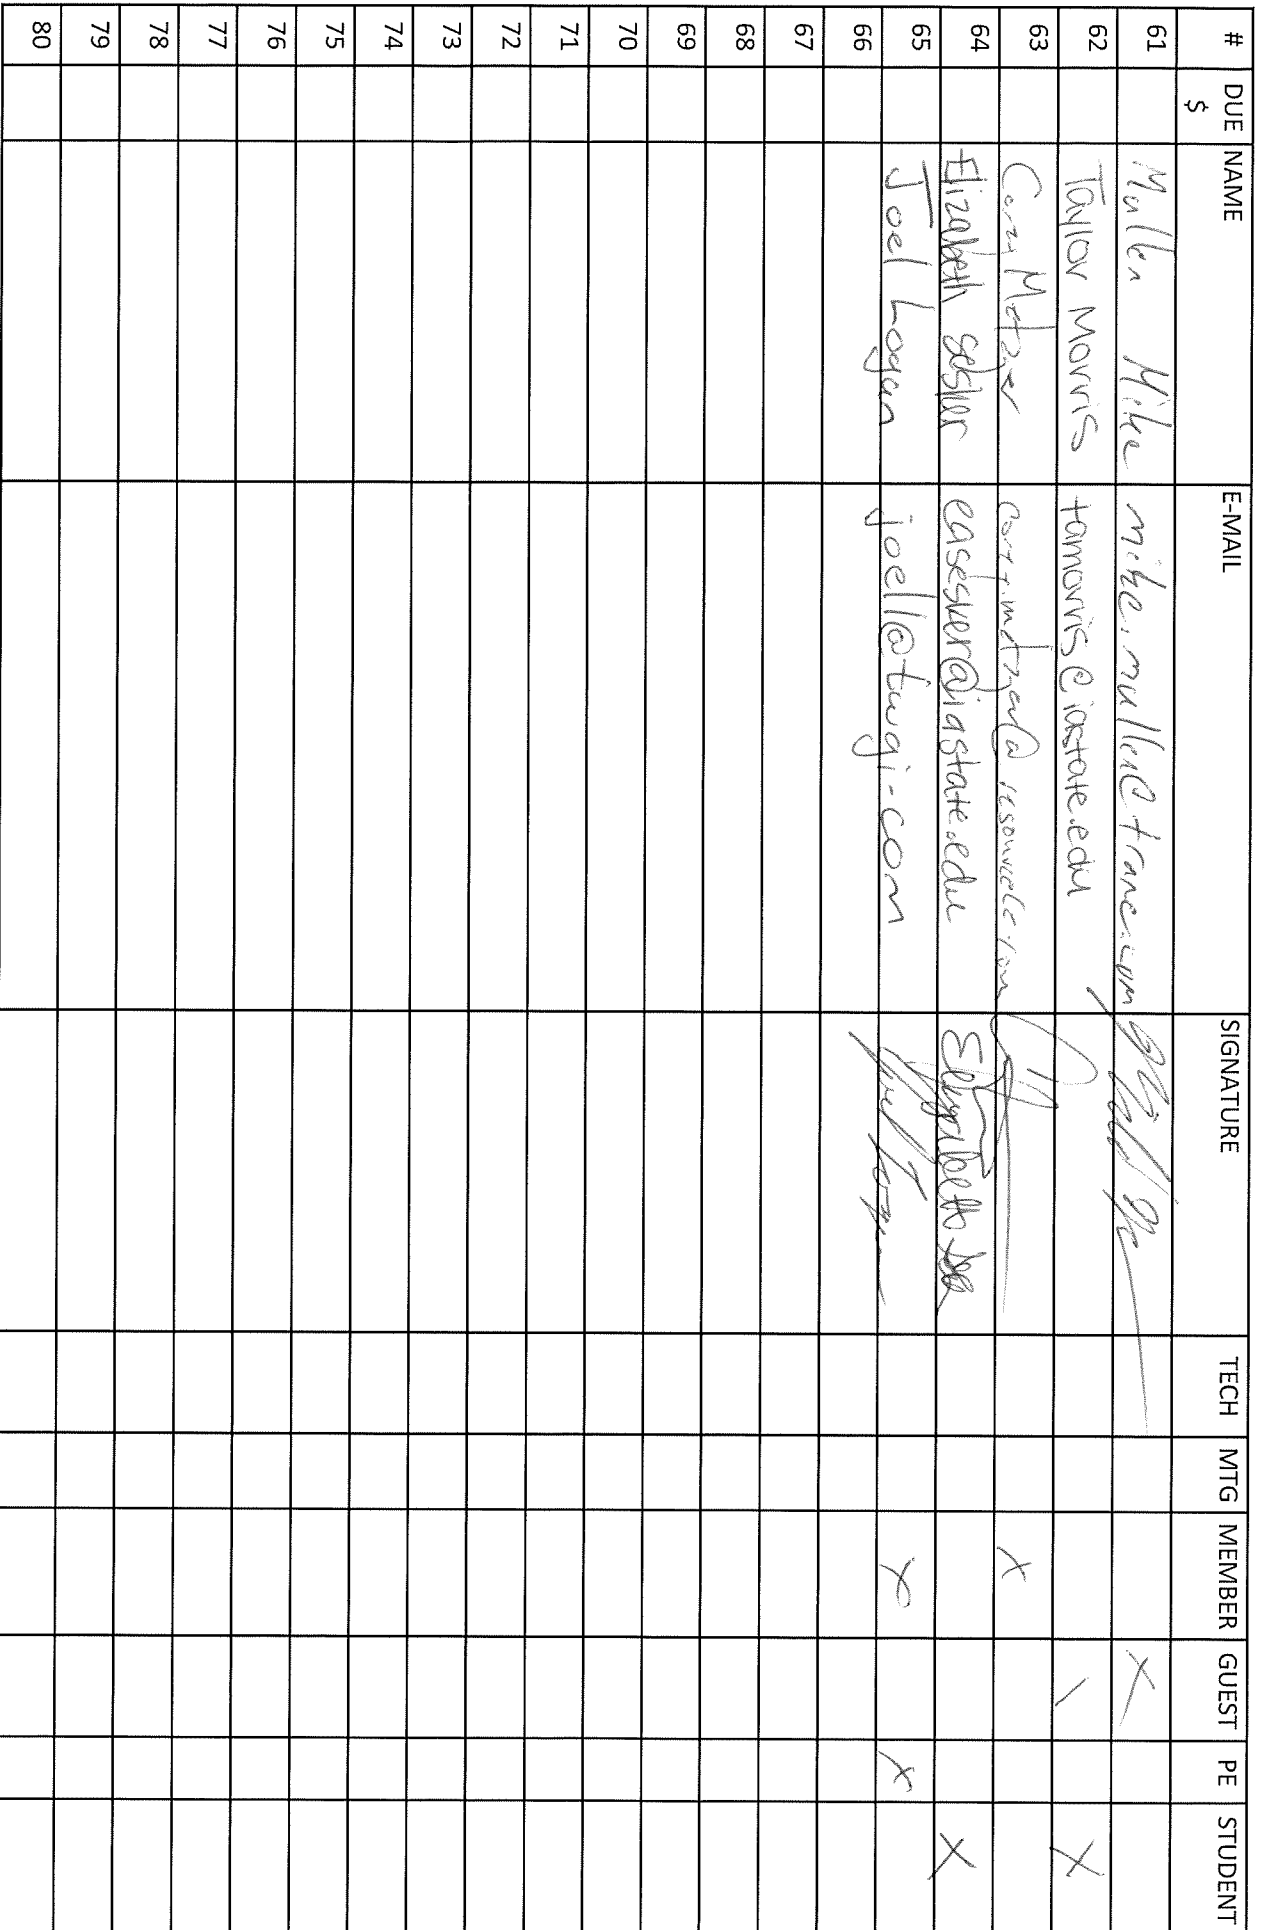 # DUE $ NAME E-MAIL SIGNATURE TECH MTG MEMBER GUEST PE STUDENT
61 Mullen Mike mike.mullen@trane.com X
62 Taylor Morris tamorris@iastate.edu \ X
63 Metzger X
64 Elizabeth sesker easesker@iastate.edu Elizabeth X
65 Joel Logan joell@twgi.com Joel Logan X X
66
67
68
69
70
71
72
73
74
75
76
77
78
79
80